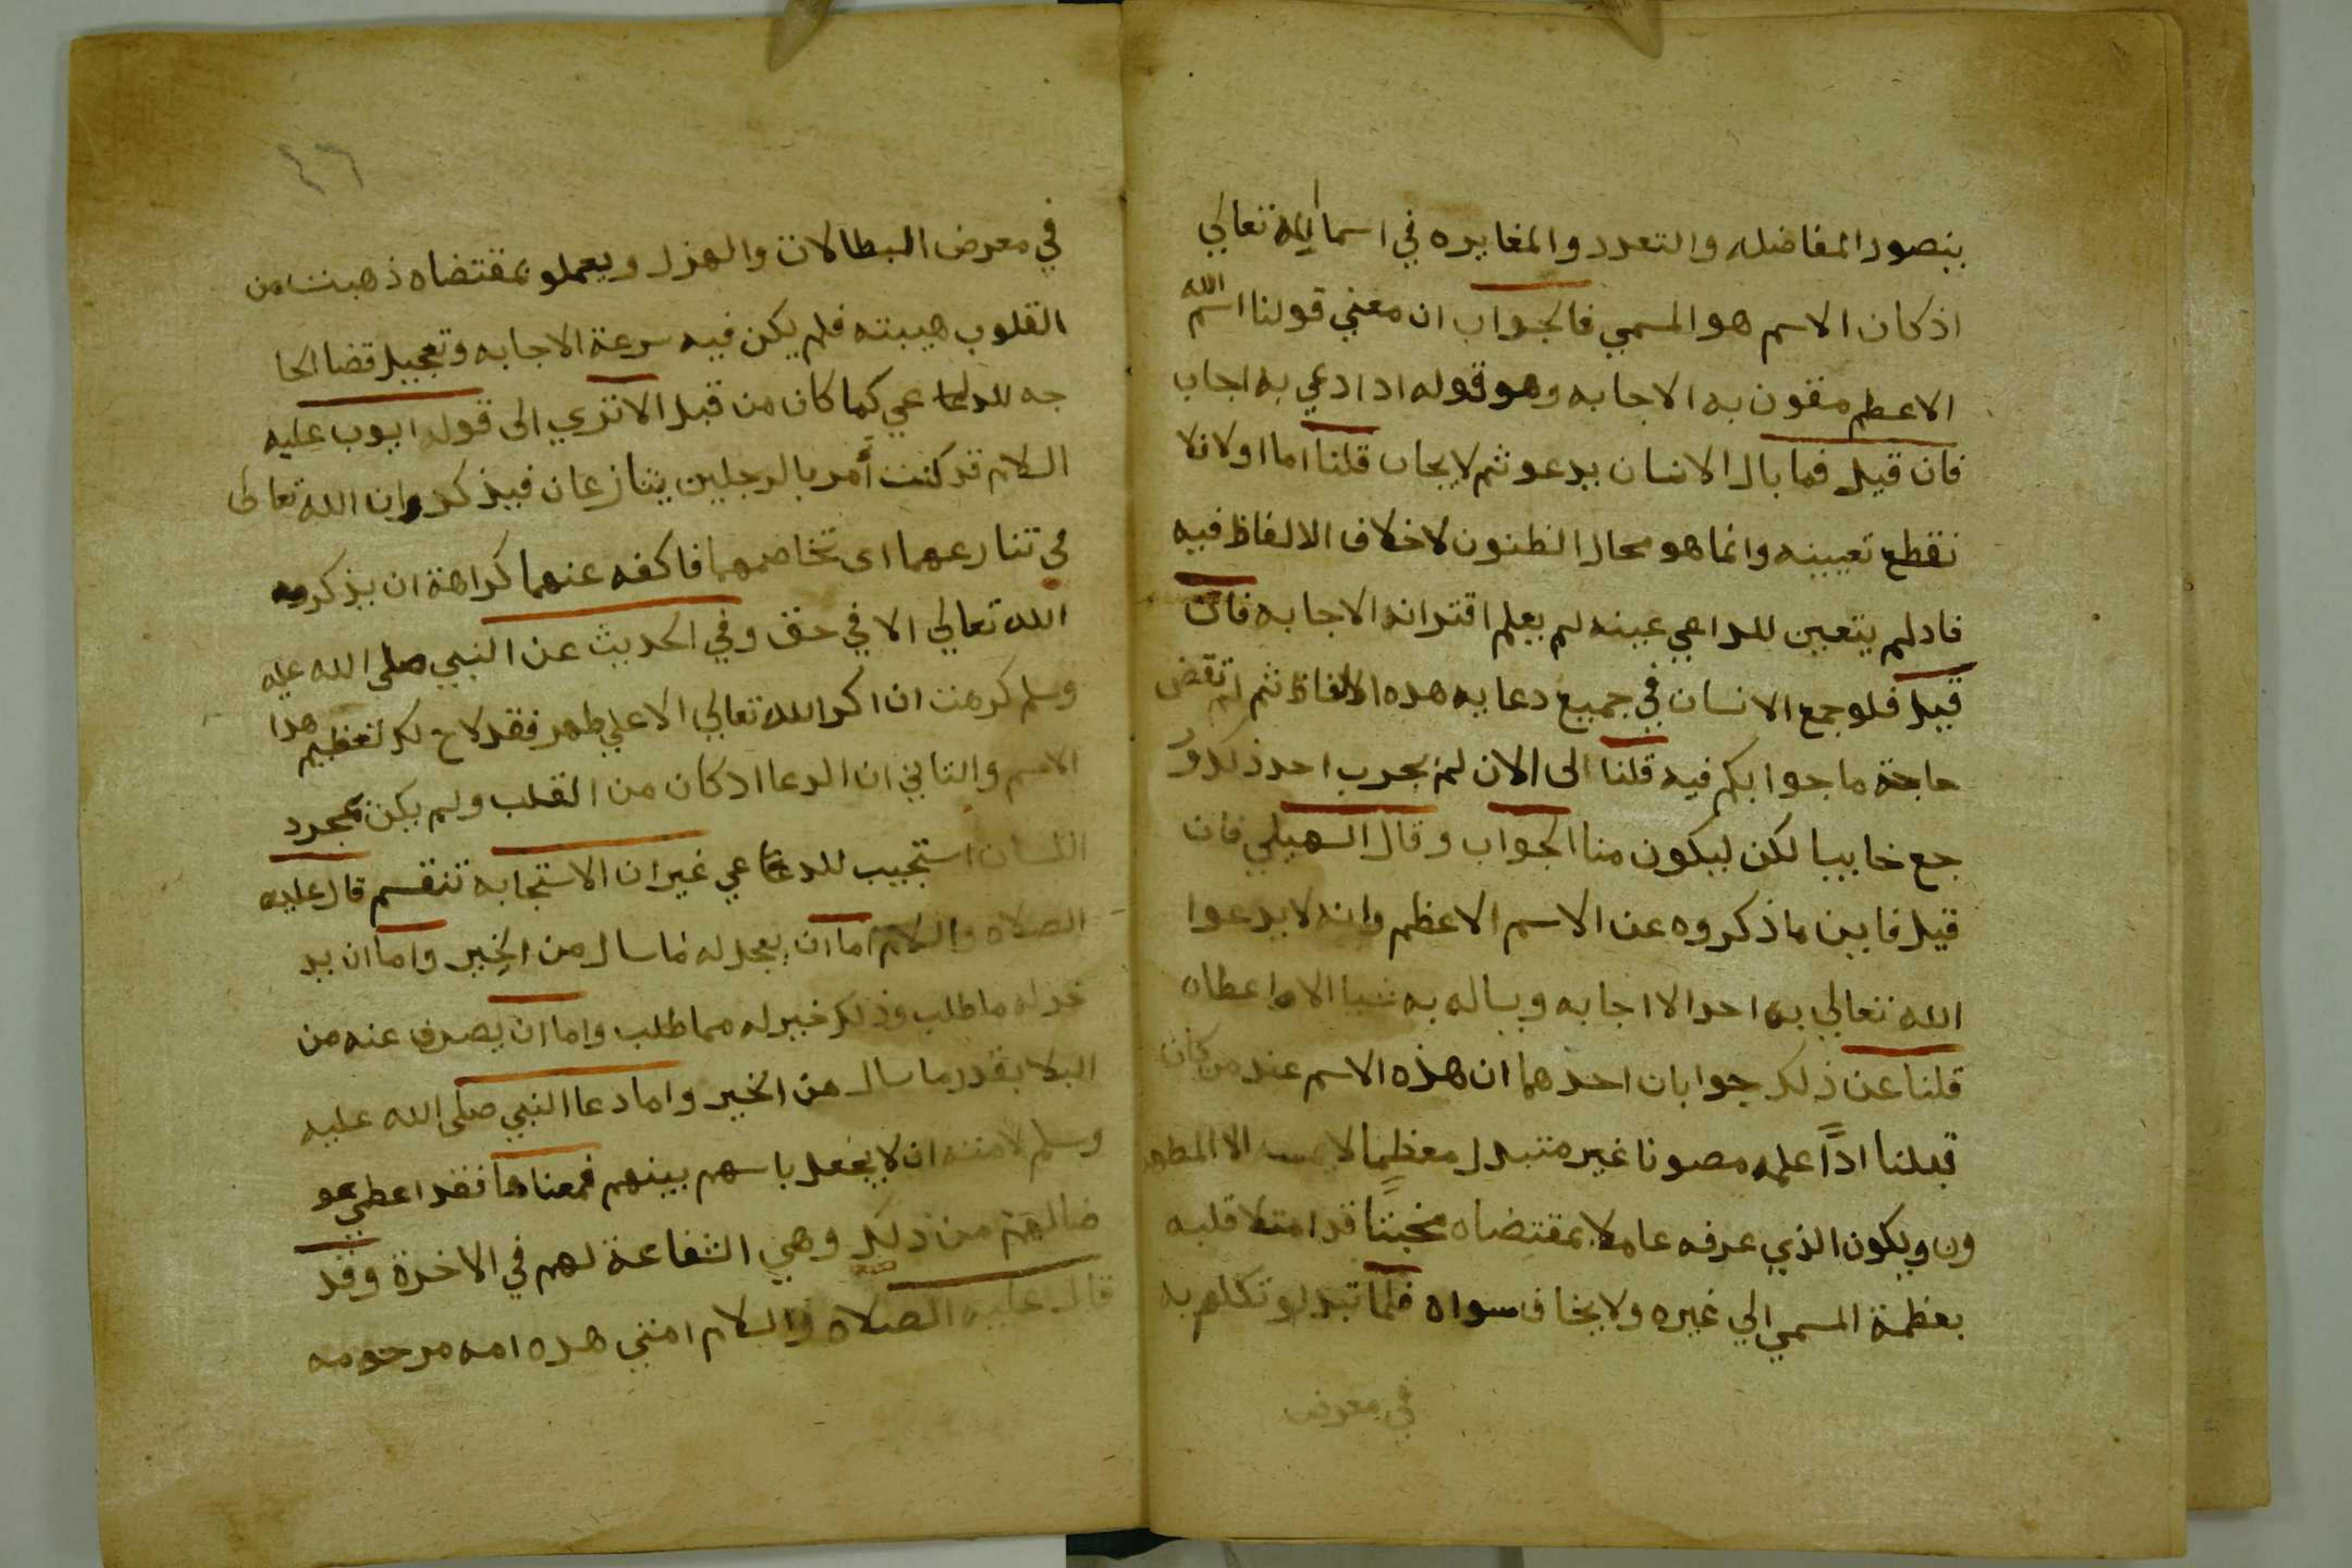 يتصور المفاضله والتعدد والمغايره في اسما الله تعالي
اذ كان الاسم هو المسمي فالجواب ان معني قولنا اسم الله
الاعظم مقرون به الاجابه وهو قوله ادا دعي به اجاب
فان قيل فما بال الانسان يدعو ثم لا يجاب قلنا اما اولا فلا
نقطع تعيينه وانما هو مجال الظنون لاختلاف الالفاظ فيه
فاد لم يتعين للداعي عينه لم يعلم اقترانه الاجابه فان
قيل فلو جمع الانسان في جميع دعايه هده الالفاظ ثم لم تقض
حاجة ما جوابكم فيه قلنا الى الان لم يجرب احد ذلك ور
جع خاييبا لكن ليكون منا الجواب وقال السهيلي فان
قيل فاين ما ذكروه عن الاسم الاعظم وانه لا يدعوا
الله تعالي به احد الا اجابه ويساله به شيا الا اعطاه
قلنا عن ذلك جوابان احدهما ان هذه الاسم عند من كان
قبلنا اداً علمه مصونا غير متبدل معظما لا يمسه الا المطهر
ون ويكون الذي عرفه عاملا بمقتضاه مخبتًا قد امتلا قلبه
بعظمة المسمي الي غيره ولا يخاف سواه فلما تبدل وتكلم به
في معرض
٤٦
في معرض البطالات والهزل ويعملو بمقتضاه ذهبت من
القلوب هيبته فلم يكن فيه سرعة الاجابه وتعجيل قضا الحا
جه للداعي كما كان من قبل الا تري الى قول ايوب عليه
السلام قد كنت أمر بالرجلين يتنازعان فيذكران الله تعالى
في تنازعهما اى تخاصمهما فاكفه عنهما كراهة ان يذكر
الله تعالي الا في حق وفي الحديث عن النبي صلى الله عليه
وسلم كرهت ان اكر الله تعالي الا علي طهر فقد لاح لك تعظيم هدا
الاسم والتاني ان الدعا اد كان من القلب ولم يكن بمجرد
اللسان استجيب للداعي غير ان الاستجابه تنقسم قال عليه
الصلاه والسلام اما ان يعجل له ما سال من الخير واما ان يد
خر له ما طلب وذلك خير له مما طلب واما ان يصرف عنه من
البلا بقدر ما سال من الخير واما دعا النبي صلى الله عليه
وسلم لامته ان لا يجعل باسهم بينهم فمعناها فقد اعطي عو
ضا لهم من ذلك وهي الشفاعة لهم في الاخرة وقد
قال عليه الصلاه والسلام امتي هده امه مرحومه